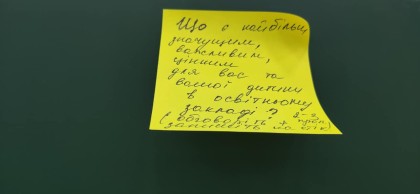 Що є найбільш
значущим,
важливим,
цінним
для вас та
вашої дитини
в освітньому
закладі?
(обговоріть 2-3
запишіть + на стік